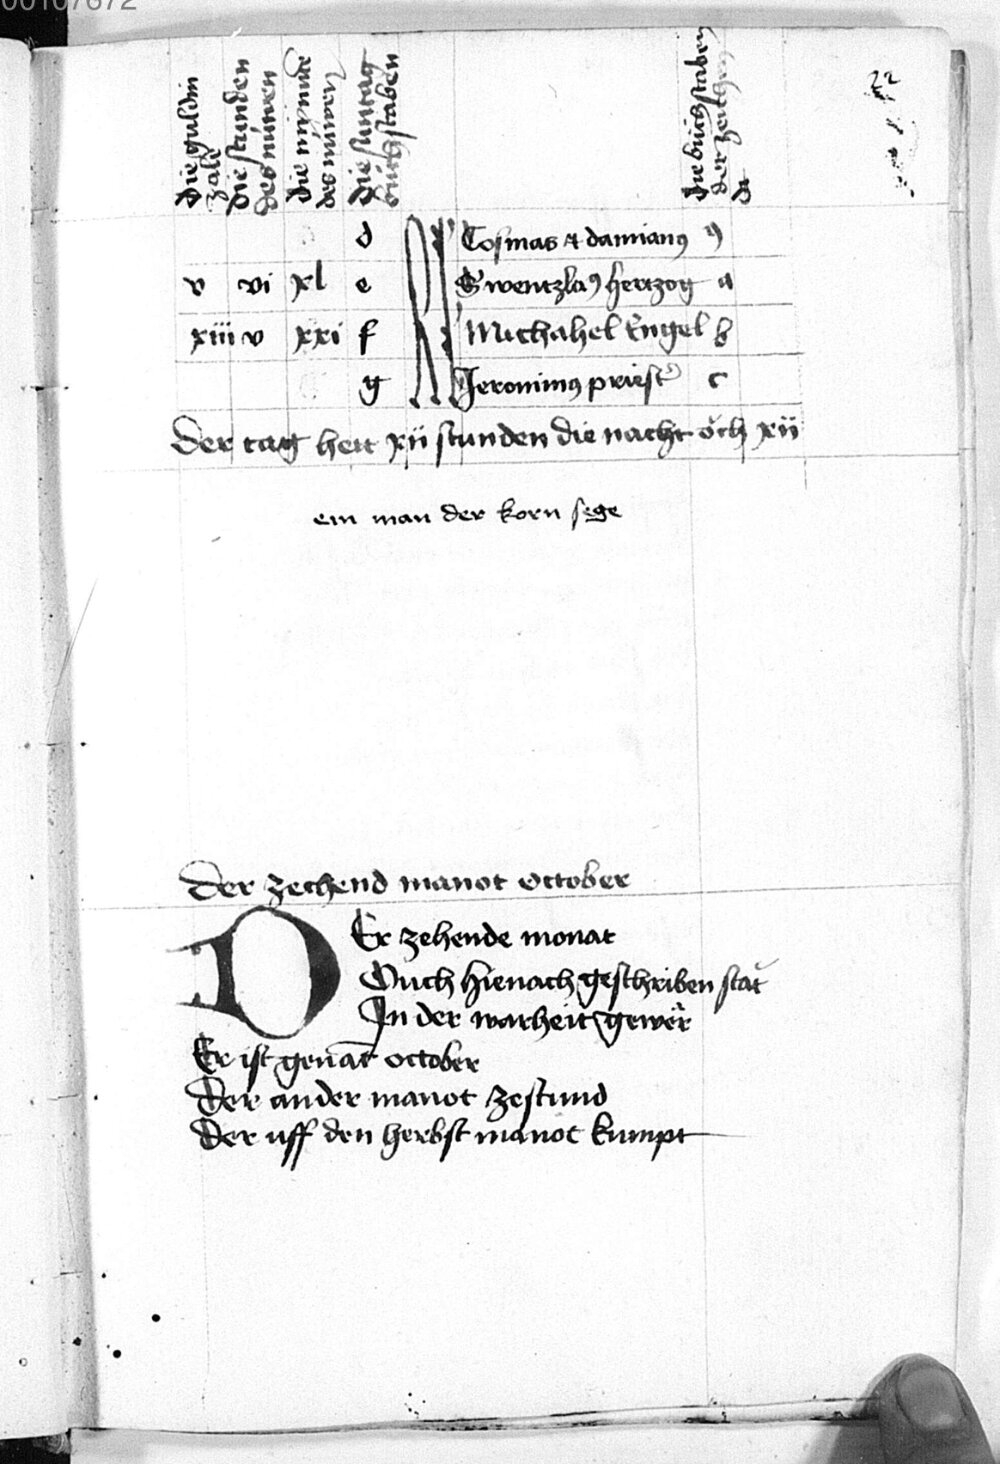 00107672
22
Die guldin zale
Die stunden des núwen
Die mynute des núwen
Die suntag bůchstaben
Die bůchstaben der zeichen
d Cosmas et damianꝰ
v vi xl e Swentzlaꝰ hertzog a
xiii v xxi f Michahel Engel b
g Jeronimꝰ priest c
Der tag hett xii stunden die nacht ŏch xii
ein man der korn sege
Der zechend manot october
DEr zehende monat
Ouch hienach geschriben stat
In der warheit gewer
Er ist genāt october
Der ander manot zestund
Der uff den herbst manot kumpt